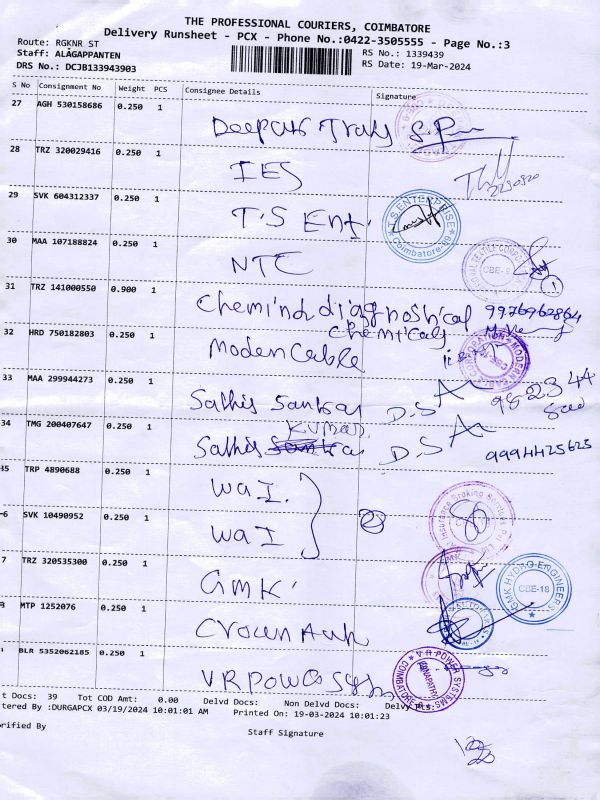 THE PROFESSIONAL COURIERS, COIMBATORE
Delivery Runsheet - PCX - Phone No.:0422-3505555 - Page No.:3
Route: RGKNR ST
Staff: ALAGAPPANTEN
DRS No.: DCJB133943903
RS No.: 1339439
RS Date: 19-Mar-2024
S No Consignment No Weight PCS Consignee Details Signature
27 AGH 530158686 0.250 1
28 TRZ 320029416 0.250 1
IES
29 SVK 604312337 0.250 1
T.S Ent. T.S ENTERPRISE Coimbatore
30 MAA 107188824 0.250 1
NTC CBE-9 1
31 TRZ 141000550 0.900 1
Chemind diagnostical 9976962864
Chemicals
32 HRD 750182803 0.250 1
Moden Cable
33 MAA 299944273 0.250 1
Sathis Sankar D.S
34 TMG 200407647 0.250 1
Kumar
Sathis D.S 9994425625
35 TRP 4890688 0.250 1
WaI.
-6 SVK 10490952 0.250 1
WaI 2 Insurance Broking Services
7 TRZ 320535300 0.250 1
GMK GMK HYDRO ENGINEER CBE-18
MTP 1252076 0.250 1
Crown
BLR 5352062185 0.250 1
VR Power Sys V R POWER SYSTEMS GANAPATHY COIMBATORE
t Docs: 39 Tot COD Amt: 0.00 Delvd Docs: Non Delvd Docs: Delvy Pts:
tered By :DURGAPCX 03/19/2024 10:01:01 AM Printed On: 19-03-2024 10:01:23
orified By Staff Signature